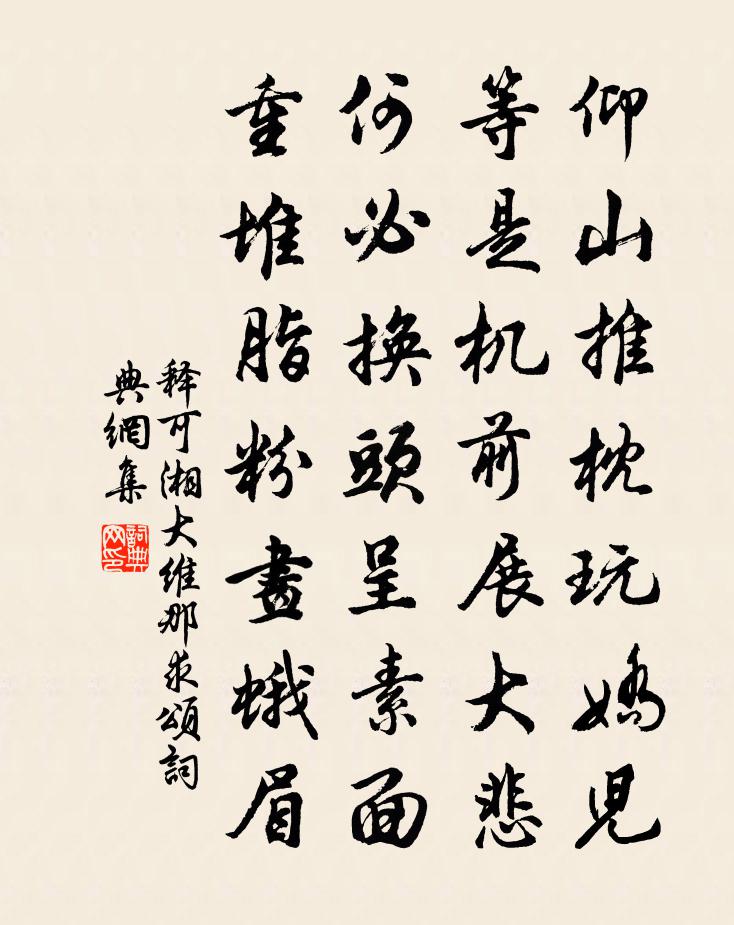 仰山推枕玩嬌兒
等是机前展大悲
何必換頭呈素面
重堆脂粉畫蛾眉
释可湘大维那求頌詞
典網集
詞典网印